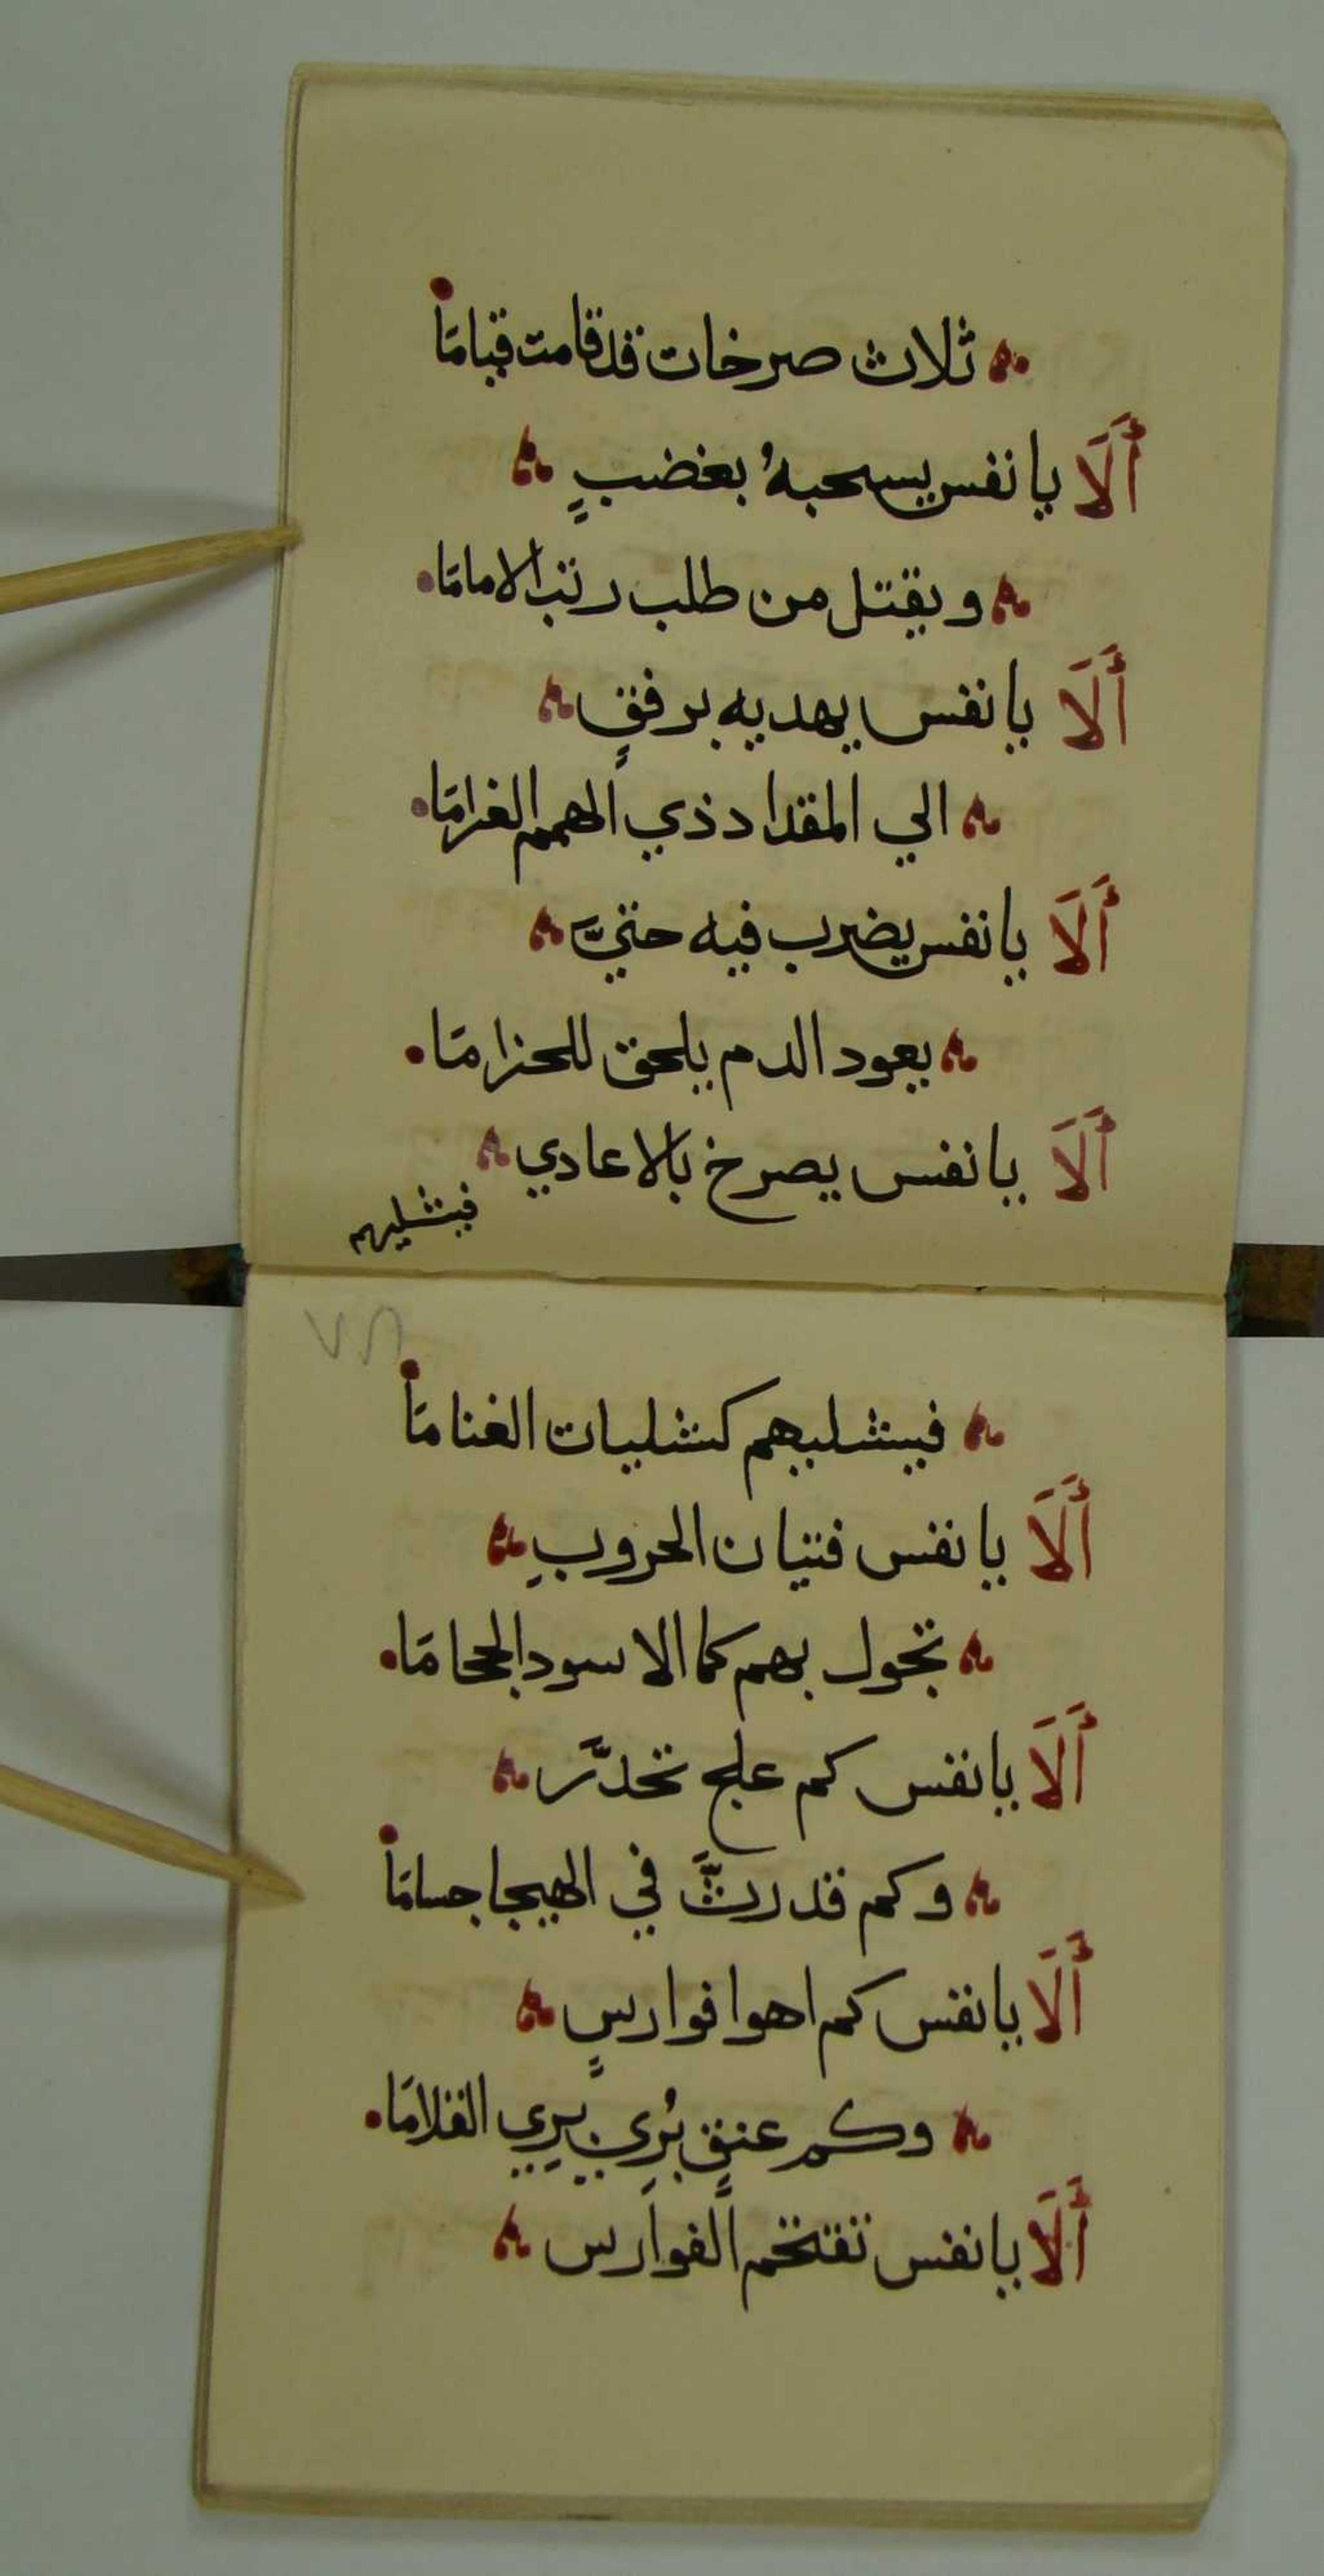 ثلاث صرخات قد قامت قيامَا
أَلَا يا نفس يسحبهُ بغضبٍ
ويقتل من طلب رتب الامامَا
أَلَا يا نفس يهديه برفقٍ
الي المقداد ذي الهمم الغرامَا
أَلَا يا نفس يضرب فيه حتيَّ
يعود الدم يلحق للحزامَا
أَلَا يا نفس يصرخ بالاعادي
فيشليهم
٧٢
فيشليهم كشليات الغنامَا
أَلَا يا نفس فتيان الحروبِ
تجول بهم كما الاسود الجحامَا
أَلَا يا نفس كم علج تخدَّر
وكم قد رثَّ في الهيجا جسامَا
أَلَا يا نفس كم اهوا فوارسٍ
وكم عنقٍ بُرِي بريِ القلامَا
أَلَا يا نفس تقتحم الفوارس